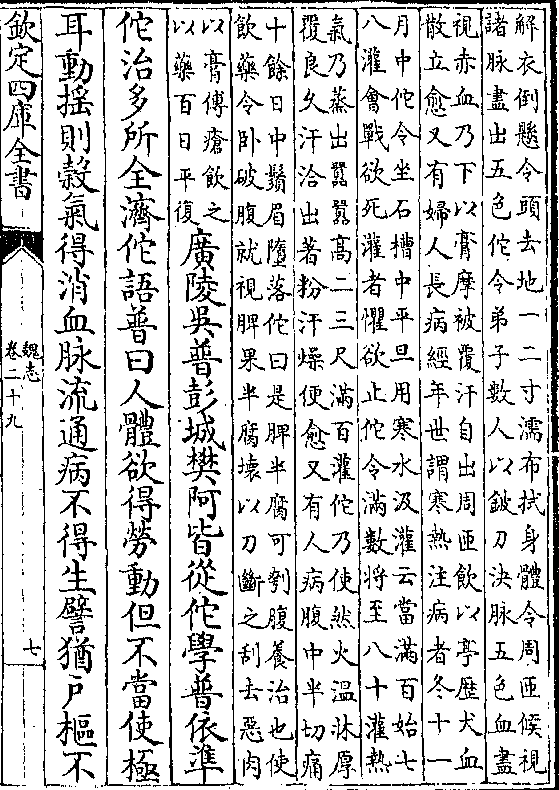 解衣倒懸令頭去地一二寸濡布拭身體令周匝候視
諸脉盡出五色佗令弟子數人以鈹刀決脉五色血盡
視赤血乃下以膏摩被覆汗自出周匝飲以亭歴犬血
散立愈又有婦人長病經年世謂寒熱注病者冬十一
月中佗令坐石槽中平旦用寒水汲灌云當滿百始七
八灌㑹戰欲死灌者懼欲止佗令滿數将至八十灌熱
氣乃蒸出嚻嚻髙二三尺滿百灌佗乃使然火温牀厚
覆良乆汗洽出著粉汗燥便愈又有人病腹中半切痛
十餘日中鬚眉墮落佗曰是脾半腐可刳腹養治也使
飲藥令卧破腹就視脾果半腐壊以刀斷之刮去惡肉
以膏傅瘡飲之
以藥百日平復
廣陵吳普彭城樊阿皆從佗學普依準
佗治多所全濟佗語普曰人體欲得勞動但不當使極
耳動揺則榖氣得消血脉流通病不得生譬猶户樞不
欽定四庫全書
魏志
卷二十九
七